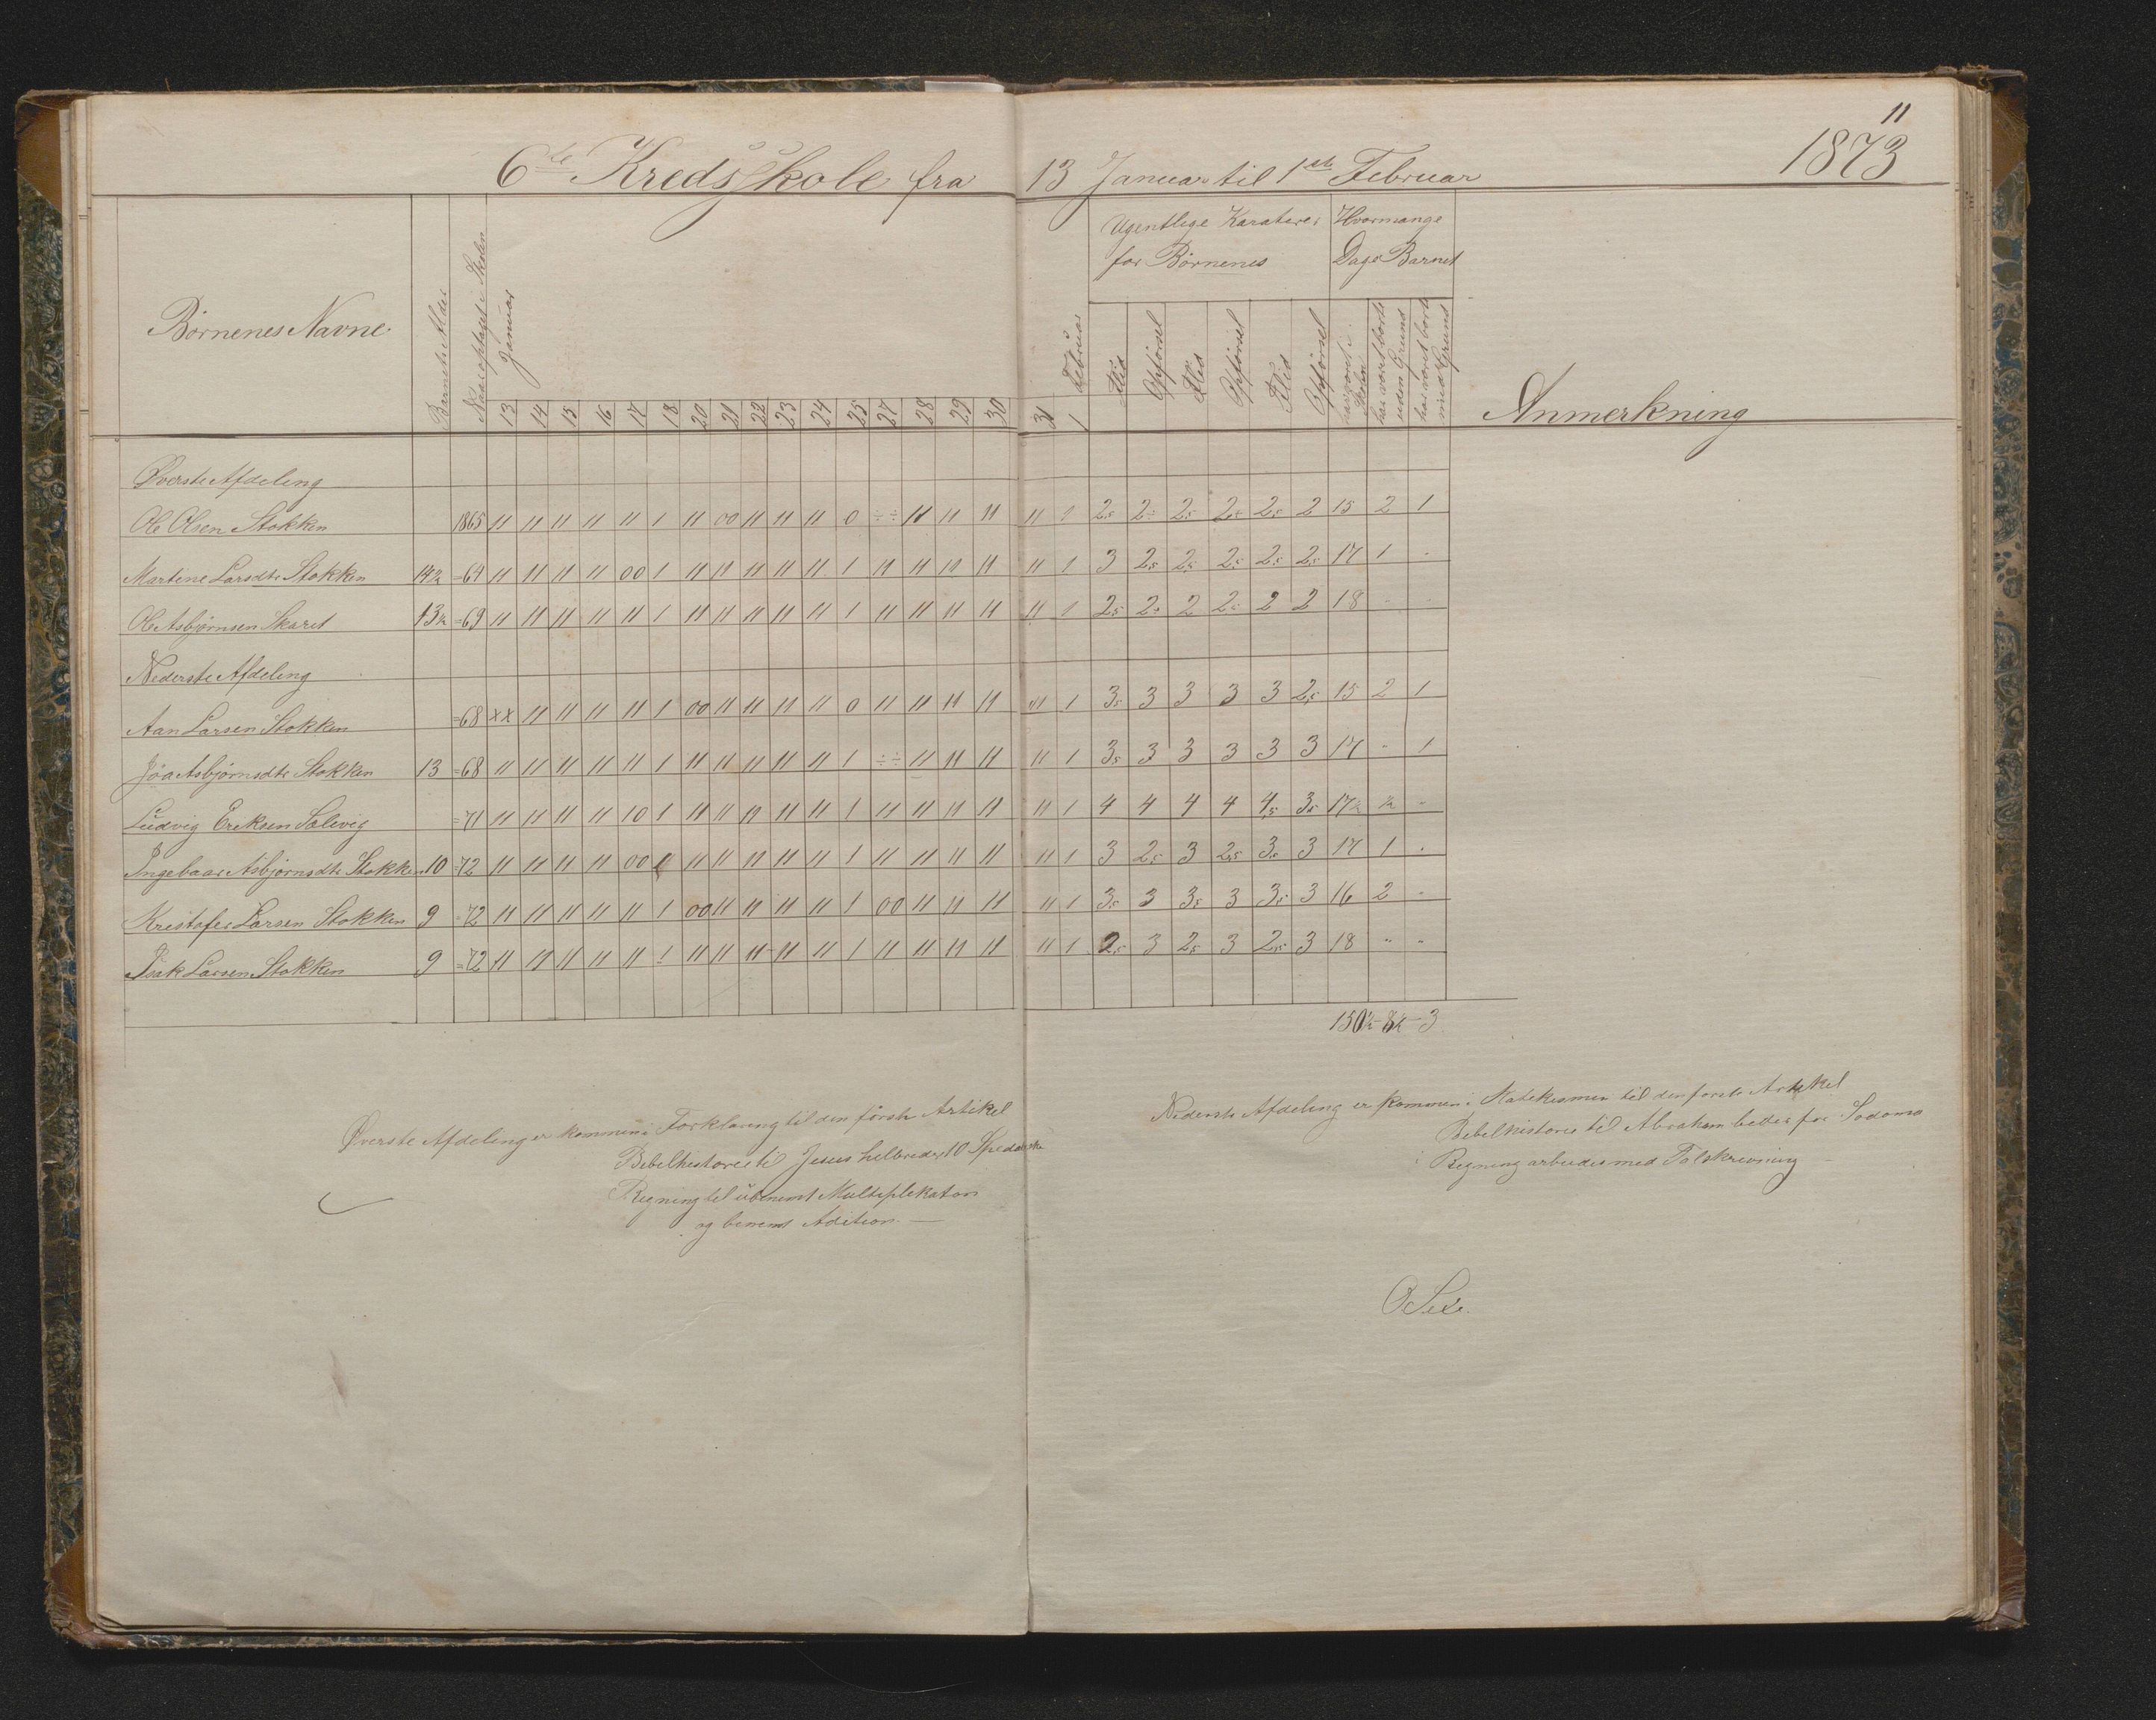 11
6te Kredsskole fra 13 Januar til 1ste Februar 1873
Børnenes Navne
Barnets Alder
Naar optaget i Skolen
Januar
13 14 15 16 17 18 20 21 22 23 24 25 27 28 29 30 31
Februar
1
Ugentlige Karakterer
for Børnenes
Flid Opførsel Flid Opførsel Flid Opførsel
Hvormange
Dage Barnet
har været i Skolen
har været borte uden Grund
har været borte med Grund
Anmerkning
Øverste Afdeling
Ole Olsen Stokken 1865 11 11 11 11 11 1 11 00 11 11 11 0 ÷÷ 11 11 11 11 1 2,5 2÷ 2,5 2÷ 2,5 2 15 2 1
Martine Larsdtr Stokken 14½ =64 11 11 11 11 00 1 11 11 11 11 11 1 11 11 11 11 11 1 3 2,5 2,5 2,5 2,5 2,5 17 1 "
Ole Asbjørnsen Skaret 13½ =69 11 11 11 11 11 1 11 11 11 11 11 1 11 11 11 11 11 1 2,5 2÷ 2 2÷ 2 2 18 " "
Nederste Afdeling
Aan Larsen Stokken =68 xx 11 11 11 11 1 00 11 11 11 11 0 11 11 11 11 11 1 3,5 3 3 3 3 2,5 15 2 1
Jøa Asbjørnsdtr Stokken 13 =68 11 11 11 11 11 1 11 11 11 11 11 1 ÷÷ 11 11 11 11 1 3,5 3 3 3 3 3 17 " 1
Ludvig Eriksen Solevig =71 11 11 11 11 10 1 11 11 11 11 11 1 11 11 11 11 11 1 4 4 4 4 4,5 3,5 17½ ½ "
Ingebaar Asbjørnsdtr Stokken 10 =72 11 11 11 11 00 1 11 11 11 11 11 1 11 11 11 11 11 1 3 2,5 3 2,5 3,5 3 17 1 "
Kristofer Larsen Stokken 9 =72 11 11 11 11 11 1 00 11 11 11 11 1 00 11 11 11 11 1 3,5 3 3,5 3 3,5 3 16 2 "
Isak Larsen Stokken 9 =72 11 11 11 11 11 1 11 11 11 11 11 1 11 11 11 11 11 1 2,5 3 2,5 3 2,5 3 18 " "
150½ - 8½ - 3
Øverste Afdeling er kommen i Forklaring til den første Artikel
Bibelhistorie til Jesus helbreder 10 Spedalske
Regning til ubenevnt Multiplikation
og benevnt Adition —
Nederste Afdeling er kommen i Katekismen til den første Artikel
Bibelhistorie til Abraham beder for Sodoma
i Regning arbeides med Talskrivning —
O Sete.